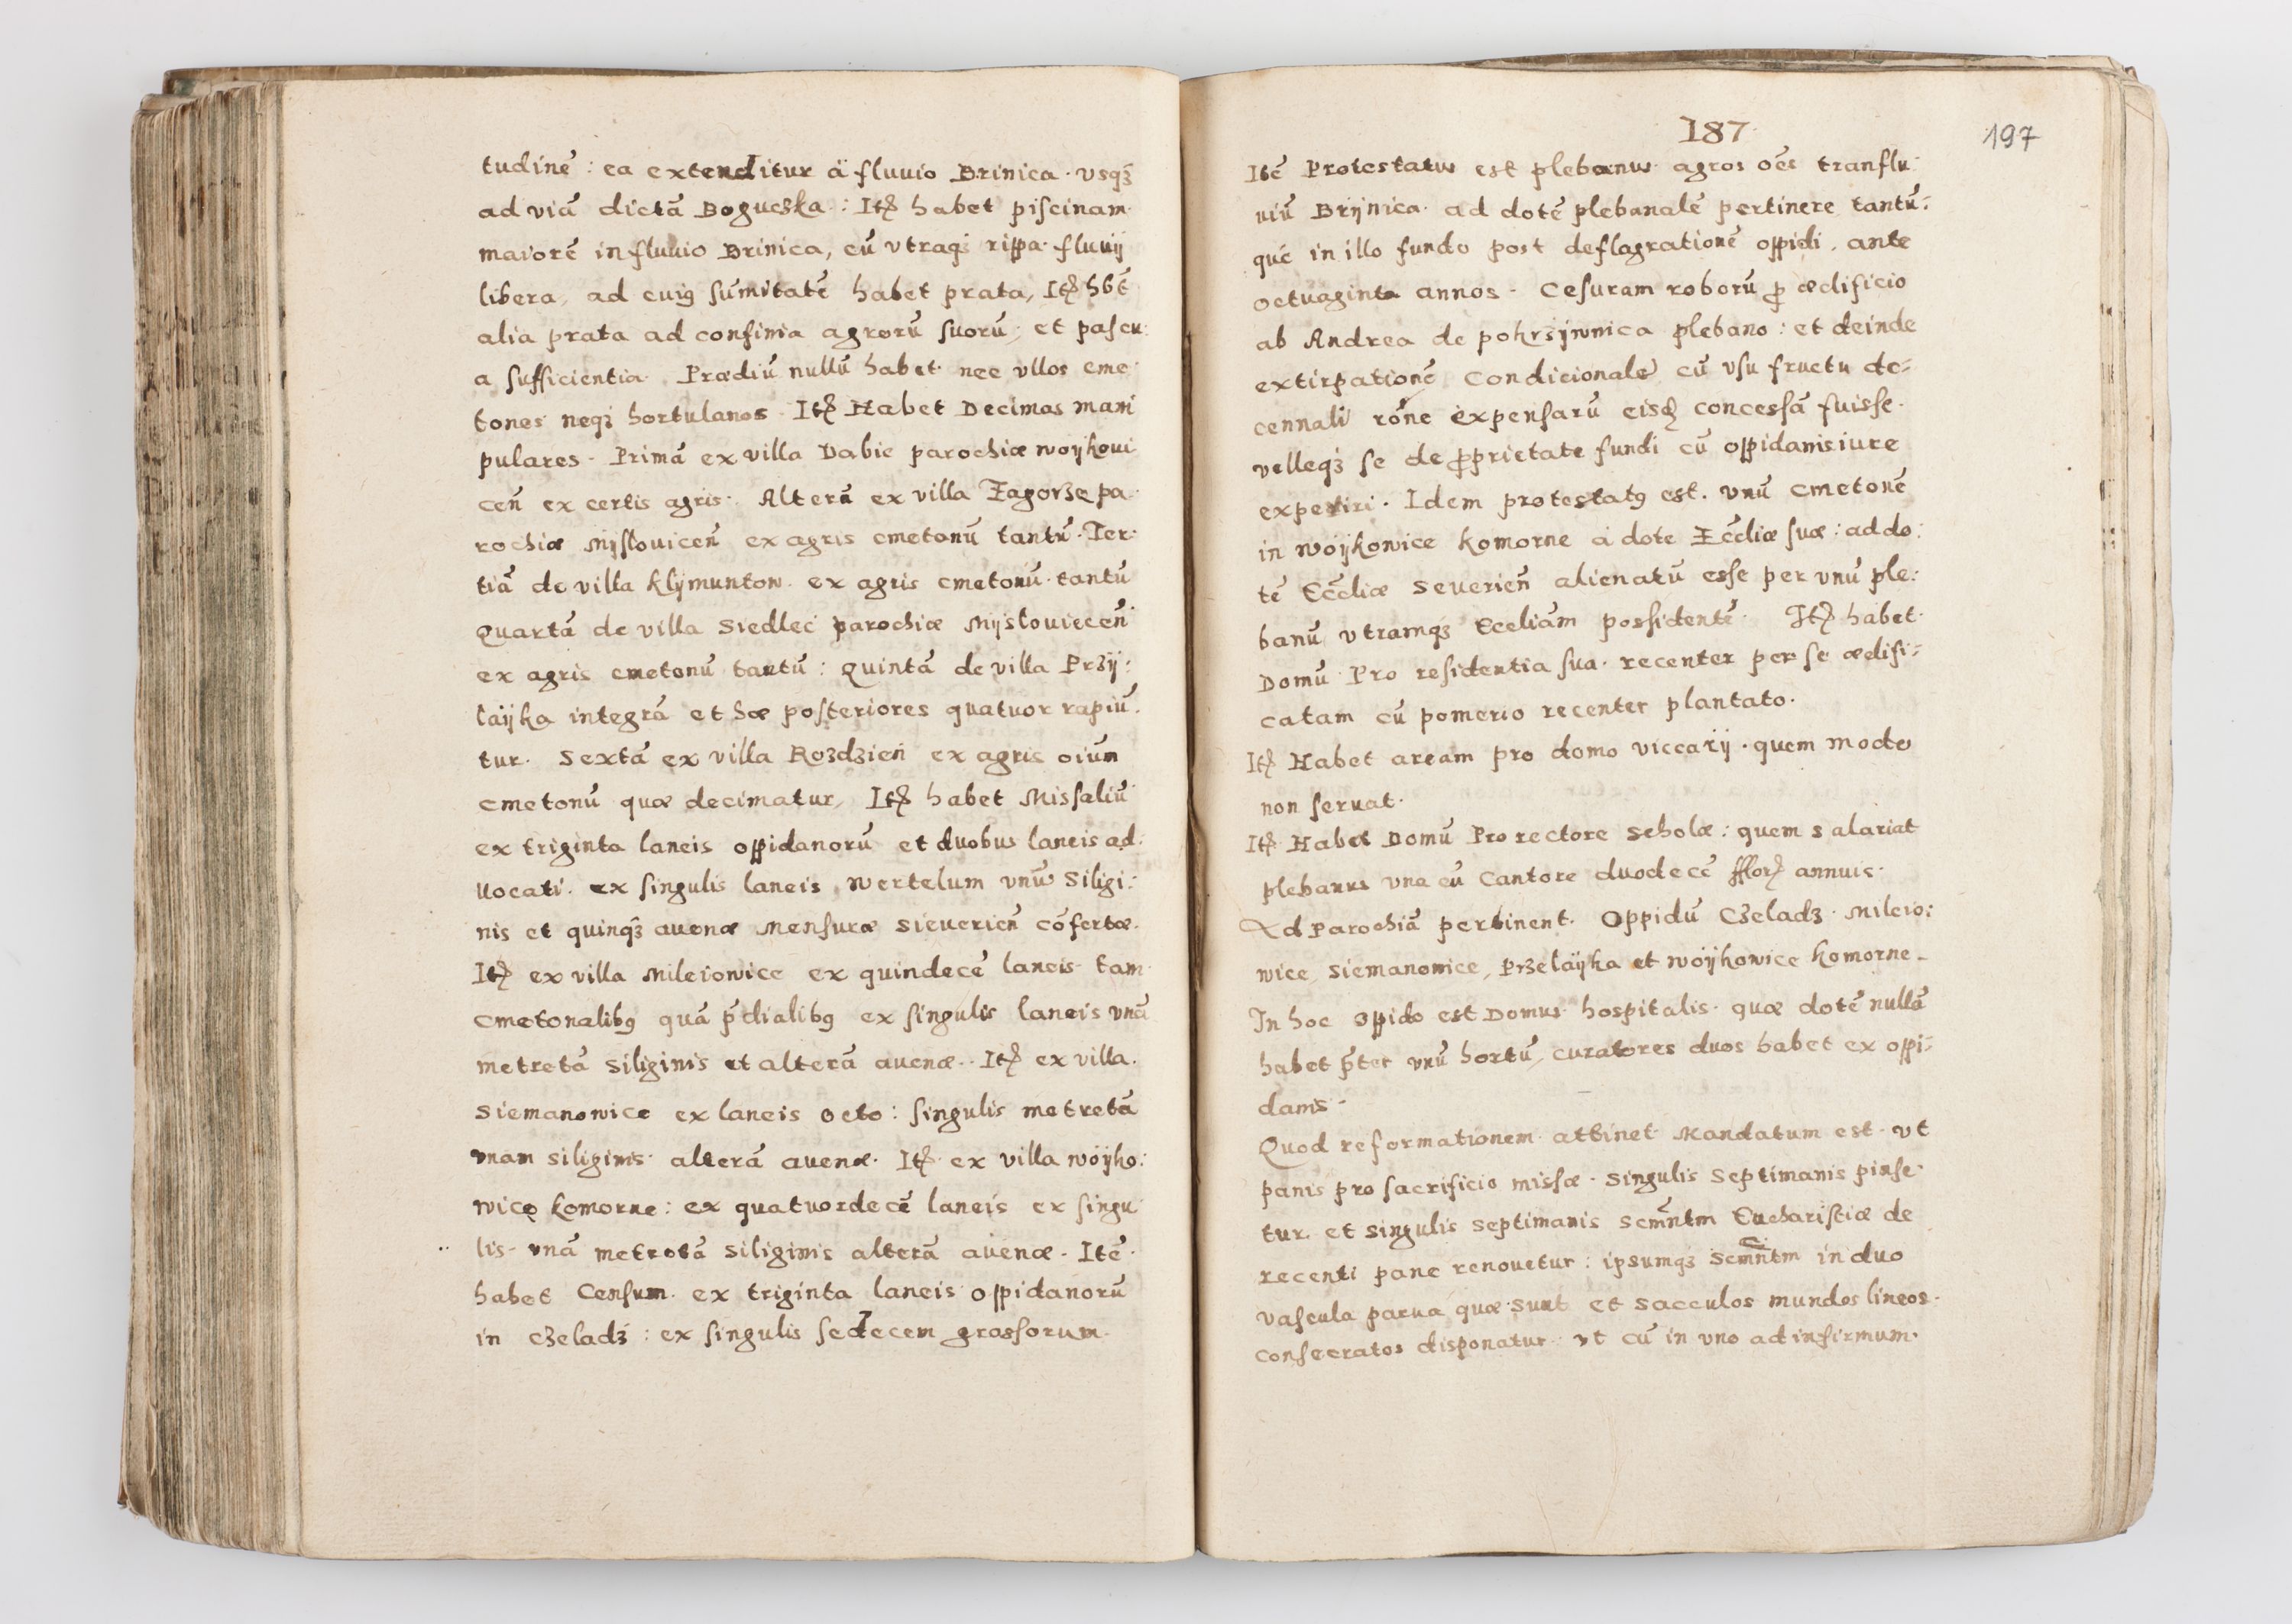 tudinē : ea extenditur ä fluuio Brinica · vsqȝ
ad viā dictā Bogucska : Itꝫ habet piscinam
maiorē in fluuio Brinica, cū vtraqȝ rippa fluuij
libera, ad cuiꝰ sum̄itatē habet prata, Itꝫ hb̄t
alia prata ad confinia agrorū suorū, et pascu:
a sufficientia. Prædiū nullū habet nec vllos cme
tones neqȝ hortulanos. Itꝫ Habet Decimas mani
pulares. Primā ex villa Dabie parochiæ woijkoui
ceń ex certis agris. Alterā ex villa Zagorze pa.
rochiæ Mijslouiceń ex agris cmetonū tantū. Ter:
tiā de villa klijmuntow ex agris cmetonū tantū
Quartā de villa Siedlec parochiæ Mijslouieceń
ex agris cmetonū tantū : Quintā de villa Przij:
laijka integrā et hæ posteriores quatuor rapiū.
tur. Sextā ex villa Rozdzień ex agris oīum
cmetonū quæ decimatur, Itꝫ habet Missaliū
ex triginta laneis oppidanorū et duobus laneis ad:
uocati. ex singulis laneis wertelum vnū Siligi:
nis et quinqȝ auenæ mensuræ Sieverień cōfertæ.
Itꝫ ex villa Mileiowice ex quindecē laneis tam
cmetonalibꝰ quā p̄dialibꝰ ex singulis laneis vnā
metretā Siliginis et alterā auenæ. Itꝫ ex villa.
Siemanowice ex laneis octo : singulis metretā
vnam siliginis alterā auenæ. Itꝫ ex villa woijko:
wice komorne : ex quatuordecē laneis ex singu
lis vnā metretā siliginis alterā auenæ. Itē
habet Censum ex triginta laneis oppidanorū
in Czeladz : ex singulis sedecem grossorum
187
197
Itē Protestatus est plebanus agros oēs tranflu:
uiū Brijnica ad dotē plebanalē pertinere tantū:
que in illo fundo post deflagrationē oppidi, ante
octuaginta annos. Cesuram roborū ꝓ ædificio
ab Andrea de pokrzijwnica plebano : et deinde
extirpationē condicionalē cū vsu fructu de:
cennali rōne expensarū eisdꝫ concessā fuisse.
velleqȝ se de ꝓprietate fundi cū oppidanis iure
experiri. Idem protestatꝰ est. vnū cmetonē
in woijkowice komorne á dote Ecc̄liæ suæ : ad do:
tē Ecc̄liæ Severień alienatū esse per vnū ple:
banū vtramqȝ Eccliam possidentē. Itꝫ habet
Domū Pro residentia sua. recenter per se ædifi:
catam cū pomerio recenter plantato.
Itꝫ Habet aream pro domo viccarij. quem modo
non seruat.
Itꝫ Habet Domū Pro rectore Scholæ : quem salariat
plebanus vna cū Cantore duodecē fflorꝫ annuis.
Ad Parochiā pertinent. Oppidū Czeladz. Mileio:
wice, Siemanowice, Przelaijka et woijkowice komorne.
In hoc oppido est Domus hospitalis quæ dotē nullā
habet p̄ter vnū hortū, curatores duos habet ex oppi:
danis.
Quod reformationem attinet Mandatum est vt
panis pro sacrificio missæ singulis septimanis pinse
tur et singulis septimanis Sem̄ntm Eucharistiæ de
recenti pane renouetur : ipsumqȝ Sem̄ntm in duo
vascula parua quæ sunt et sacculos mundos lineos
consecratos disponatur vt cū in vno ad infirmum.